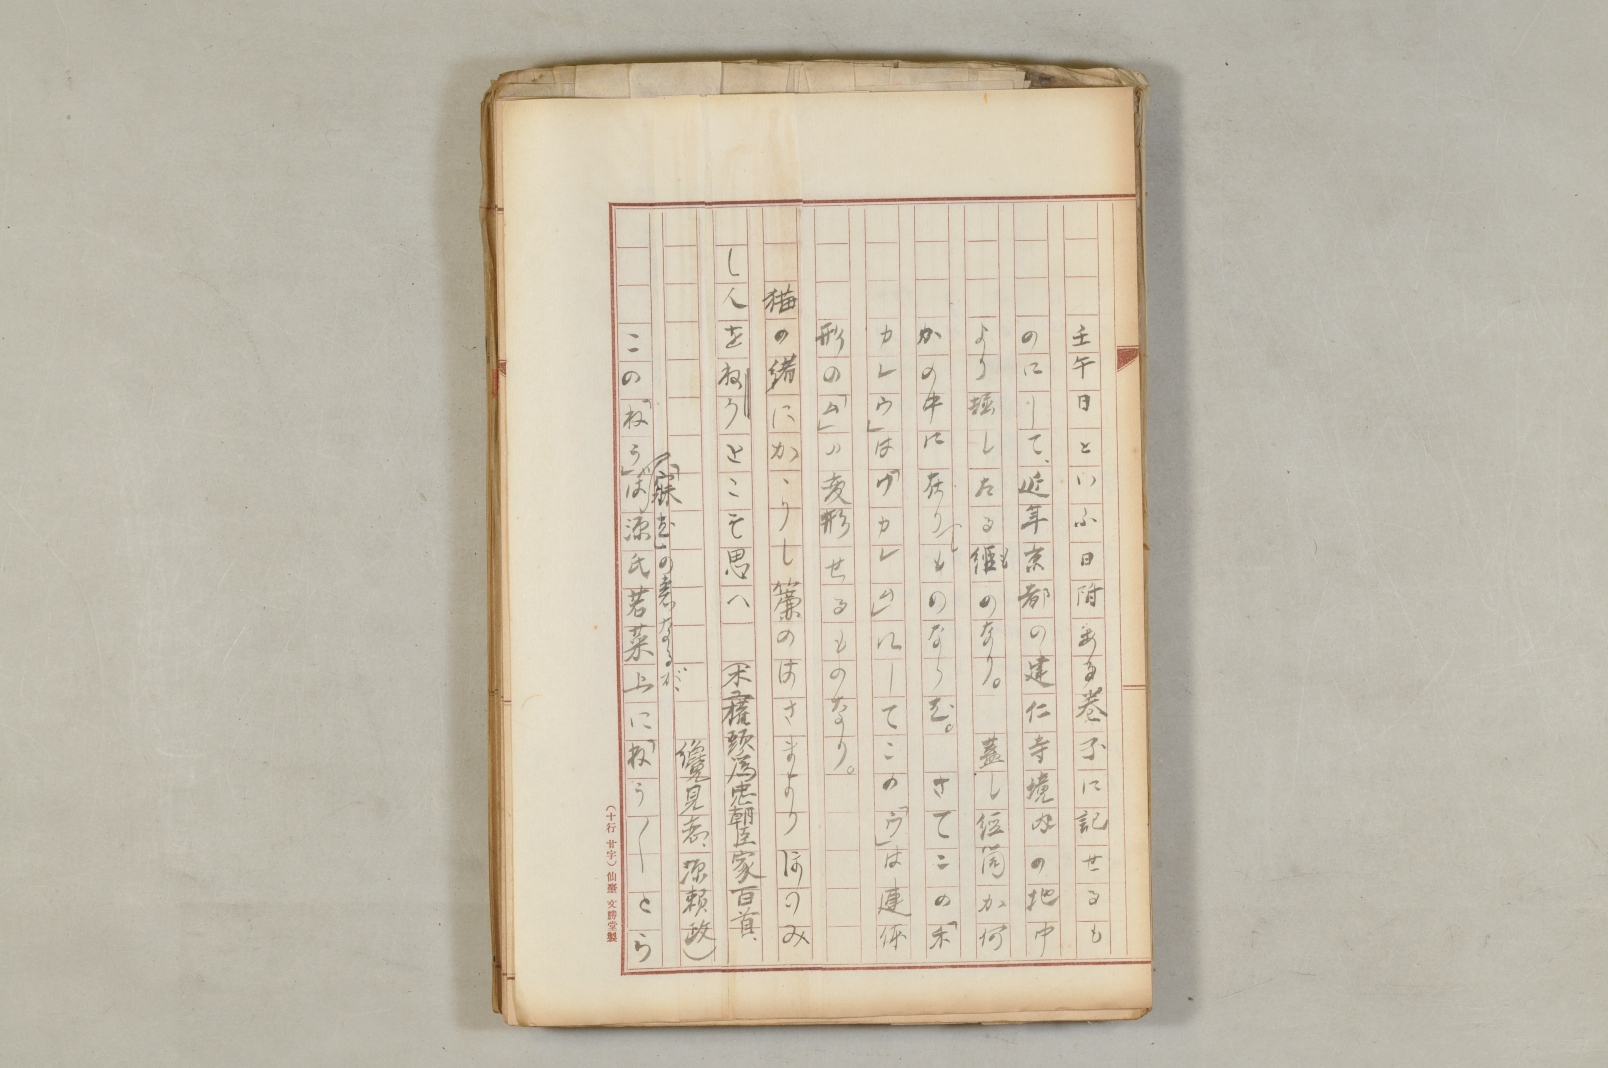 壬午日といふ日附ある巻子に記せるも
のにして、近年京都の建仁寺境内の地中
より掘し出る経ものなり。蓋し経筒か何
かの中に在りしものならむ。さてこの「未
カレウ」は「ワカレム」にしてこの「ウ」は連体
形の「ム」の変形せるものなり。
猫の緒にかゝりし簾のはさまよりほのみ
し人をねうとこそ思へ(木工権頭為忠朝臣家百首、
纔見恋、源頼政)
「寐む」の意なるが、
この「ねう」は源氏若菜上に「ねう〳〵とら
(十行廿字)仙台 文勝堂製